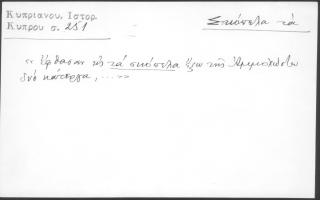 Κυπριανου, Ιστορ.
Κυπρου σ. 251
Σκόπελα τά
«Ἔφθασαν εἰς τά σκόπελα ἔξω τῆς Ἀμμοχώστου
δυό κάτεργα, ...»